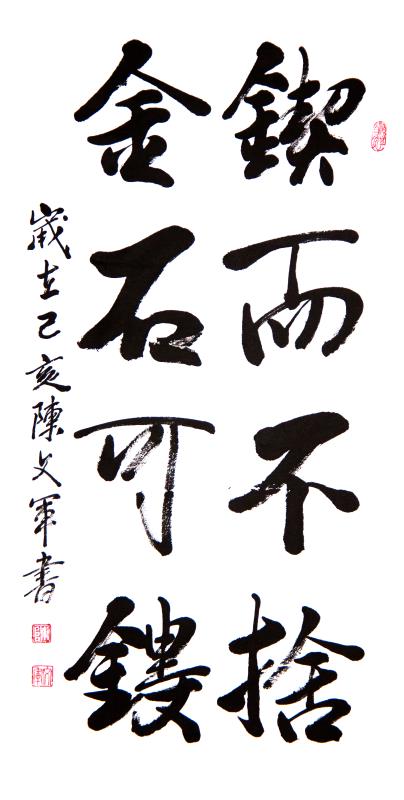 鍥而不捨
金石可鏤
歲在己亥陳文軍書